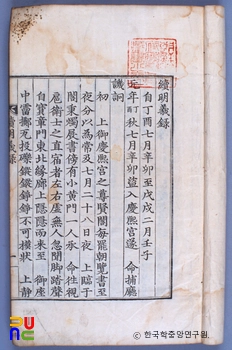 續明義錄
自丁酉七月辛卯至戊戌二月壬子
元年丁酉秋七月辛卯盜入慶熙宮遂 命捕廳
譏詗
初 上御慶熙宮之尊賢閣每罷朝覽書至
夜分以爲常及七月二十八日夜 上臨于
閤東燭展書傍有小黃門一人承 命往視
扈衛士之直宿者左右虛無人忽聞脚踏聲
自寶章門東北緣廊上隱隱而來至 御座
中霤擲瓦投礫錚錚不可狀 上靜
續明義錄
한국학중앙연구원